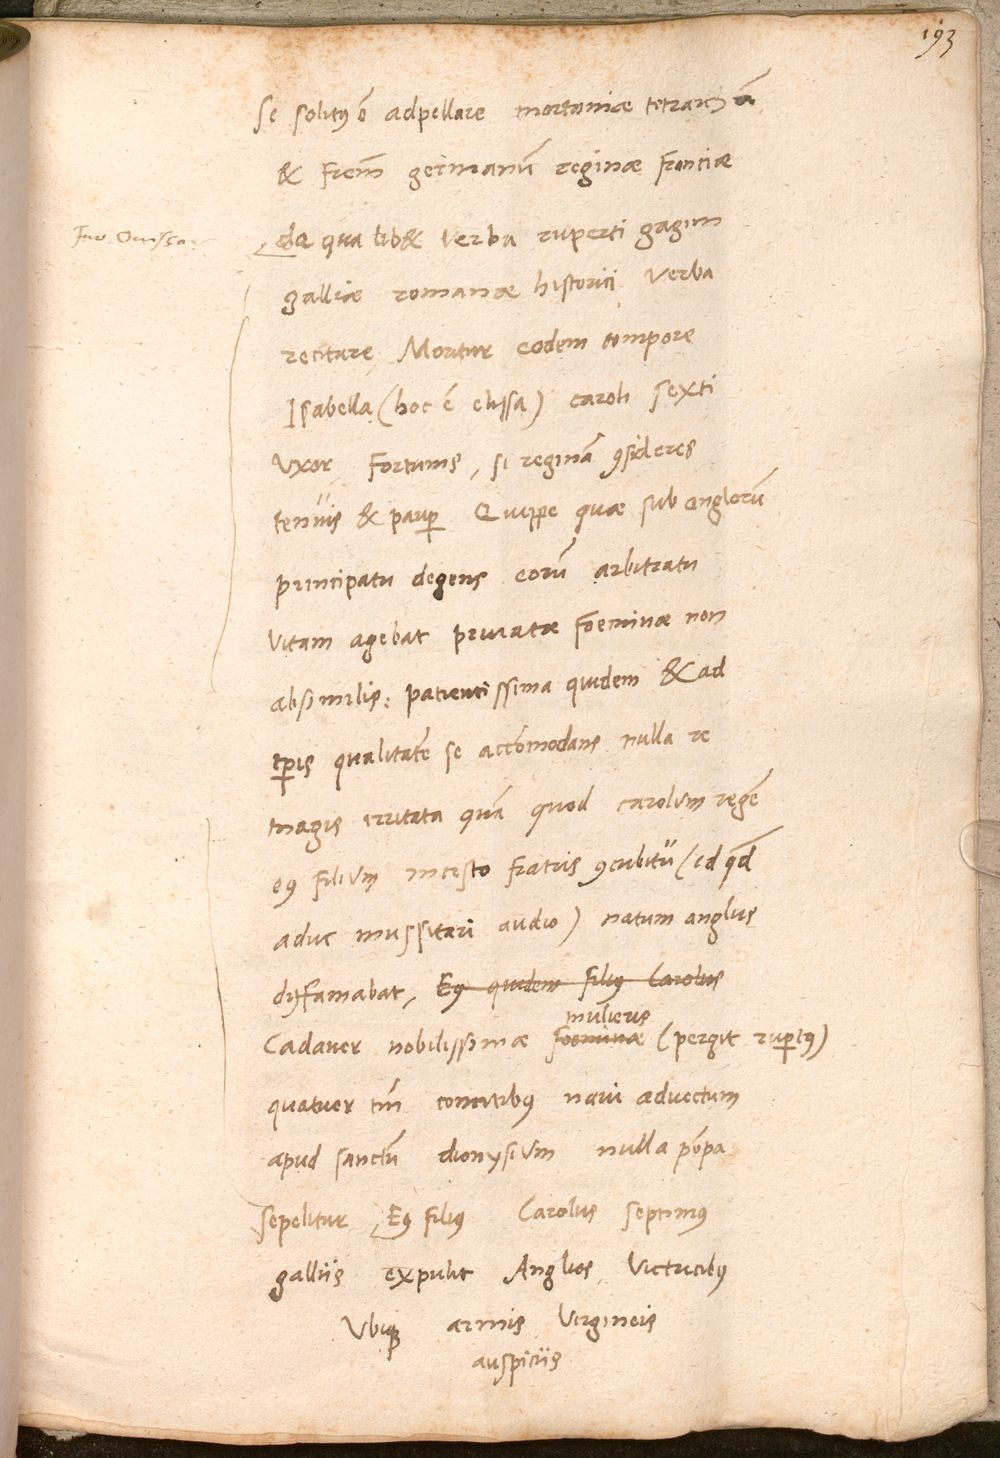 193
se solitꝰ ē adpellare mortaniæ tetrarchā
& frem̄ germanū reginæ franciæ
de qua lib& verba ruperti gaguin
galliæ romanæ historici verba
recitare Moritur eodem tempore
Isabella (hoc ē elissa) caroli sexti
Uxor, fortunis, si reginā ꝯsideres
tenuis & paup̲ Quippe quæ sub anglorū
principatu degens eorū arbitratu
Vitam agebat privatæ foeminæ non
absimilis: patientissima quidem & ad
tp̲is qualitatē se accōmodans nulla re
magis irritata quā quod carolum regē
eꝰ filium incesto fratris ꝯcubitu (id qd̄
aduc mussitari audio) natum anglus
diffamabat, Eꝰ quidem filiꝰ Carolus
mulieris
Cadaver nobilissimæ foeminæ (pergit rup̲tꝰ)
quatuor tm̄ comitibꝰ navi advectum
apud sanctū dionysium nulla pōpa
sepelitur, Eꝰ filiꝰ Carolus septimꝰ
galliis expulit Anglos, Victricibꝰ
Ubiqꝫ armis Virgineis
auspiciis